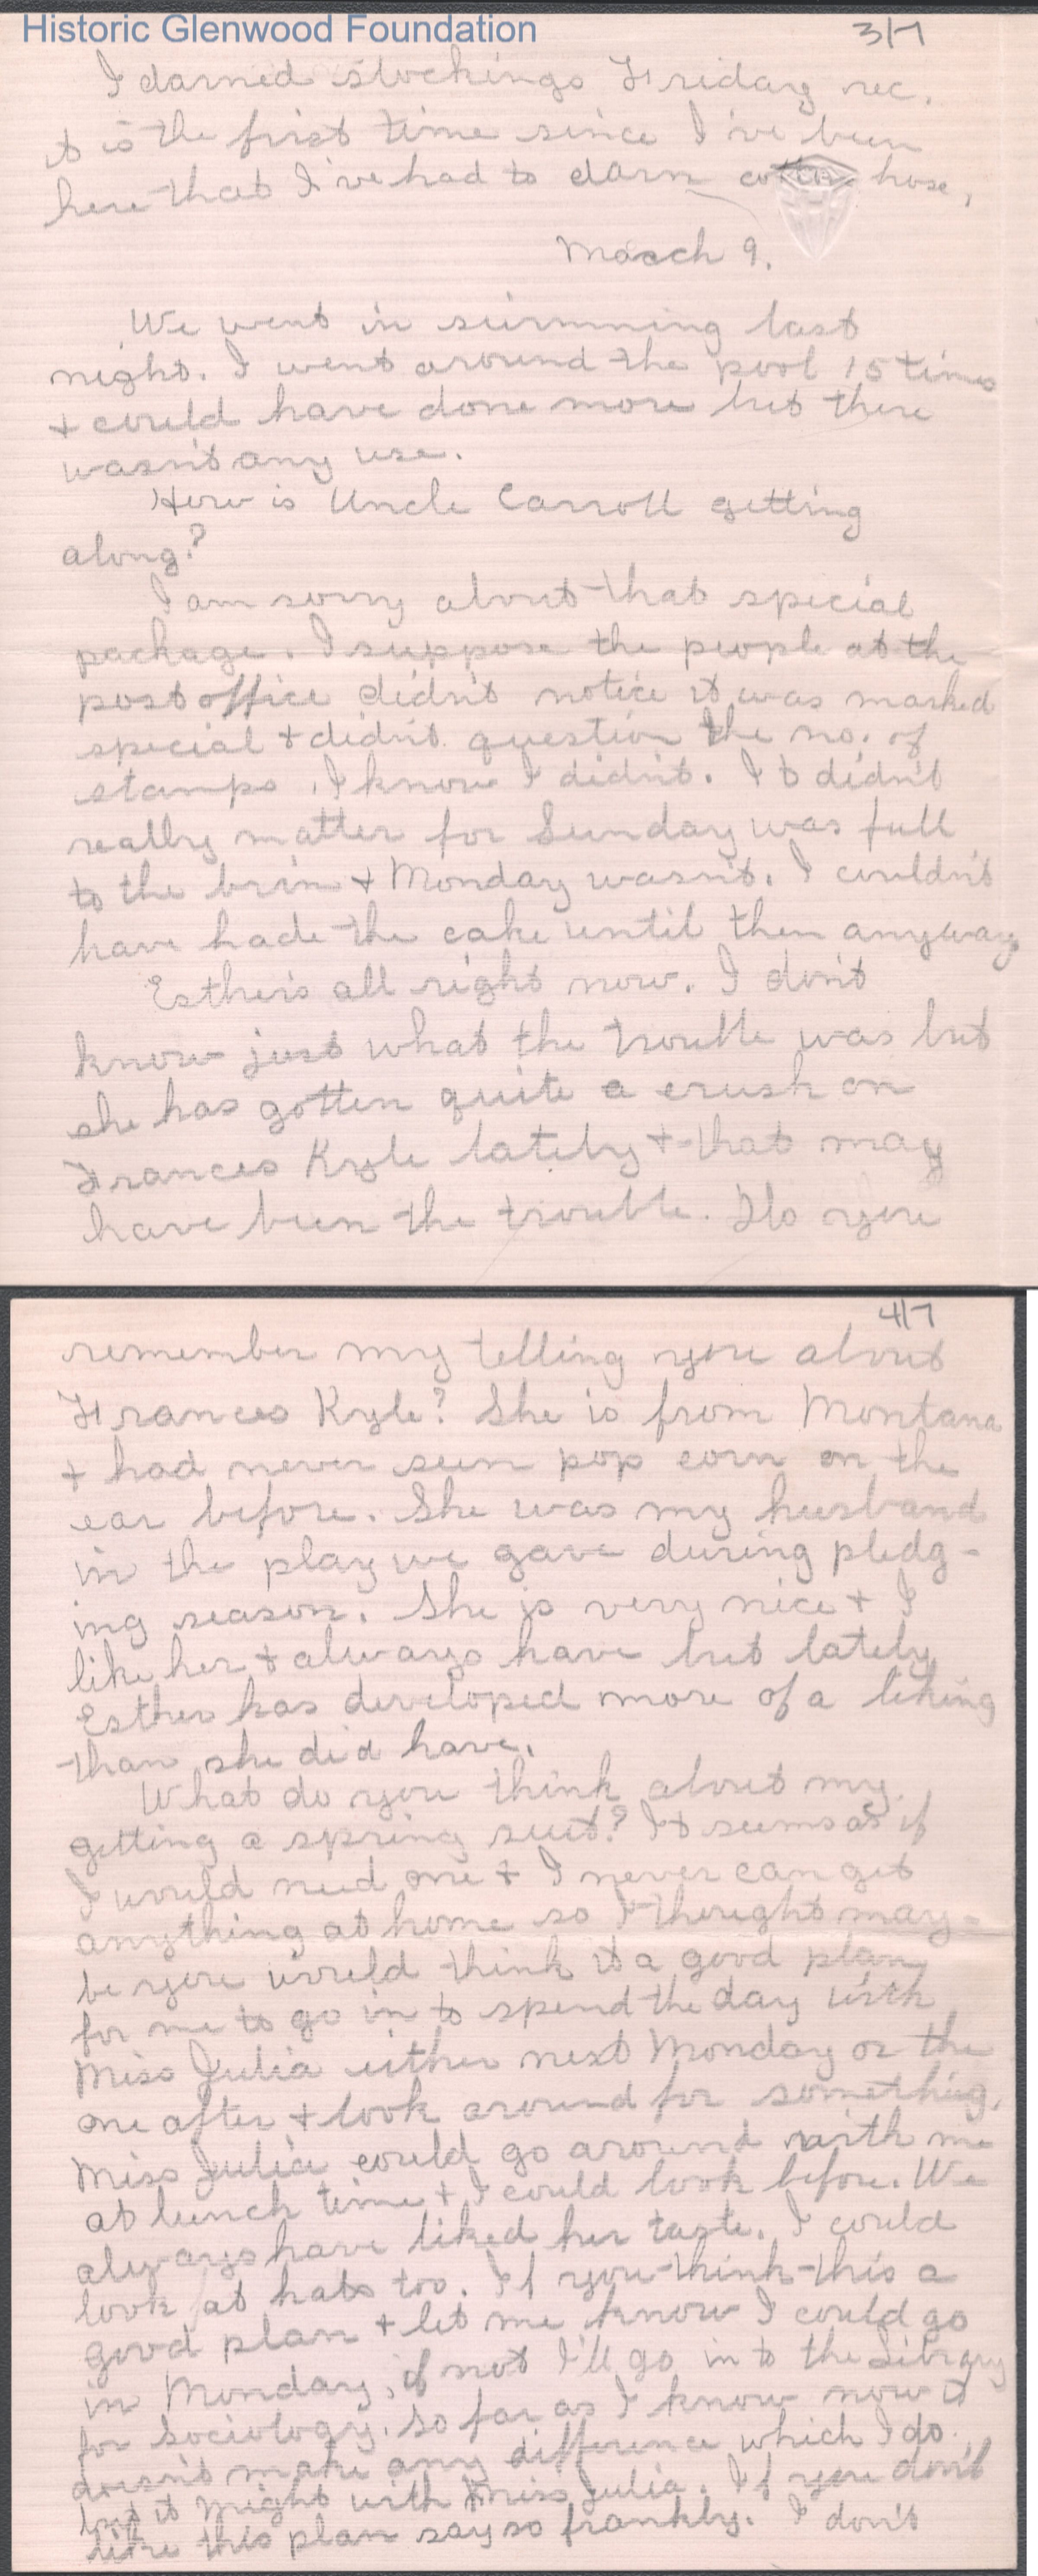 Historic Glenwood Foundation
3/7
I darned stockings Friday rec.
it is the first time since I've been
here that I've had to darn cotton hose,
March 9.
We went in swimming last
night. I went around the pool 15 times
+ could have done more but there
wasn't any use.
How is Uncle Carroll getting
along?
I am sorry about that special
package. I suppose the people at the
post office didn't notice it was marked
special + didn't question the no. of
stamps. I know I didn't. It didn't
really matter for Sunday was full
to the brim + Monday wasn't. I couldn't
have hade the cake until then anyway
Esther's all right now. I don't
know just what the trouble was but
she has gotten quite a crush on
Frances Kyle lately + that may
have been the trouble. Do you
4/7
remember my telling you about
Frances Kyle? She is from Montana
+ had never seen pop corn on the
ear before. She was my husband
in the play we gave during pledg-
ing season. She is very nice + I
like her + always have but lately
Esther has developed more of a liking
than she did have.
What do you think about my
getting a spring suit? It seems as if
I would need one + I never can get
anything at home so I thought may-
be you would think it a good plan
for me to go in to spend the day with
Miss Julia either next Monday or the
one after + look around for something.
Miss Julia could go around with me
at lunch time + I could look before. We
always have liked her taste. I could
look at hats too. If you think this a
good plan + let me know I could go
in Monday, if not I'll go in to the Library
for sociology. So far as I know now it
doesn't make any difference which I do
but it might with Miss Julia. If you don't
like this plan say so frankly. I don't